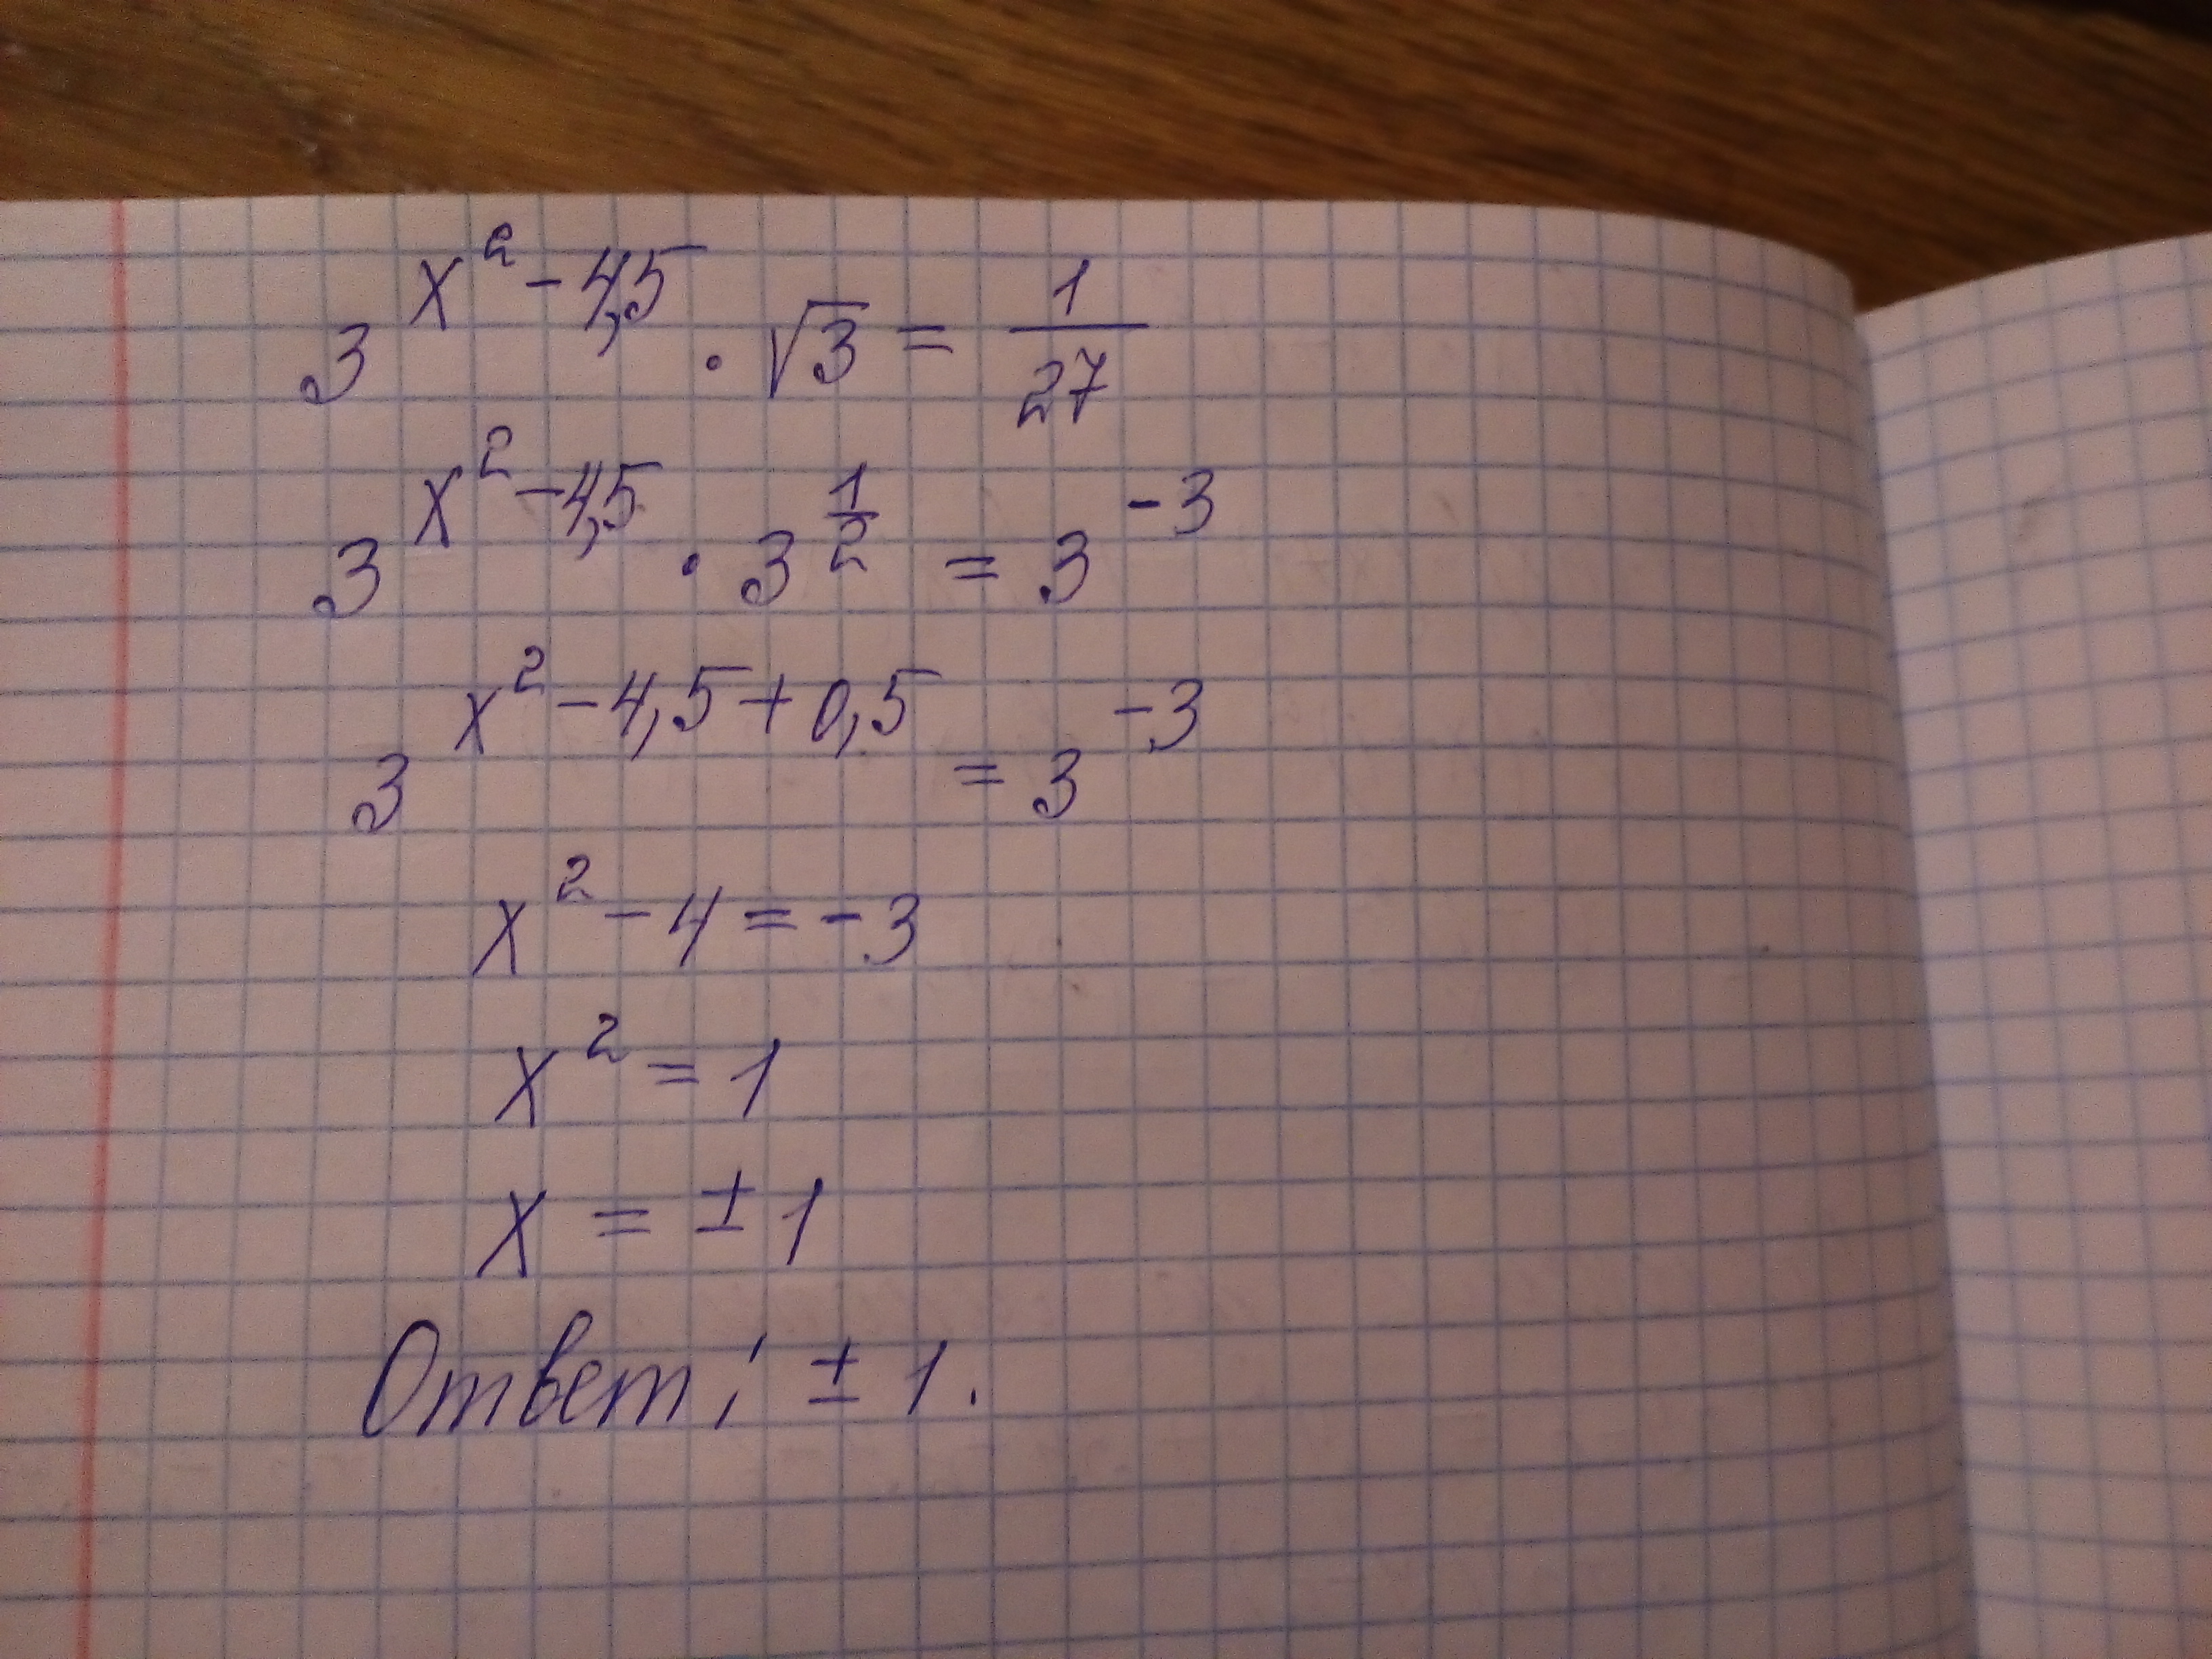 3^{x^2-4,5} · √3 = 1/27
3^{x^2-4,5} · 3^{1/2} = 3^{-3}
3^{x^2-4,5+0,5} = 3^{-3}
x^2 - 4 = -3
x^2 = 1
x = ± 1
Ответ: ± 1.